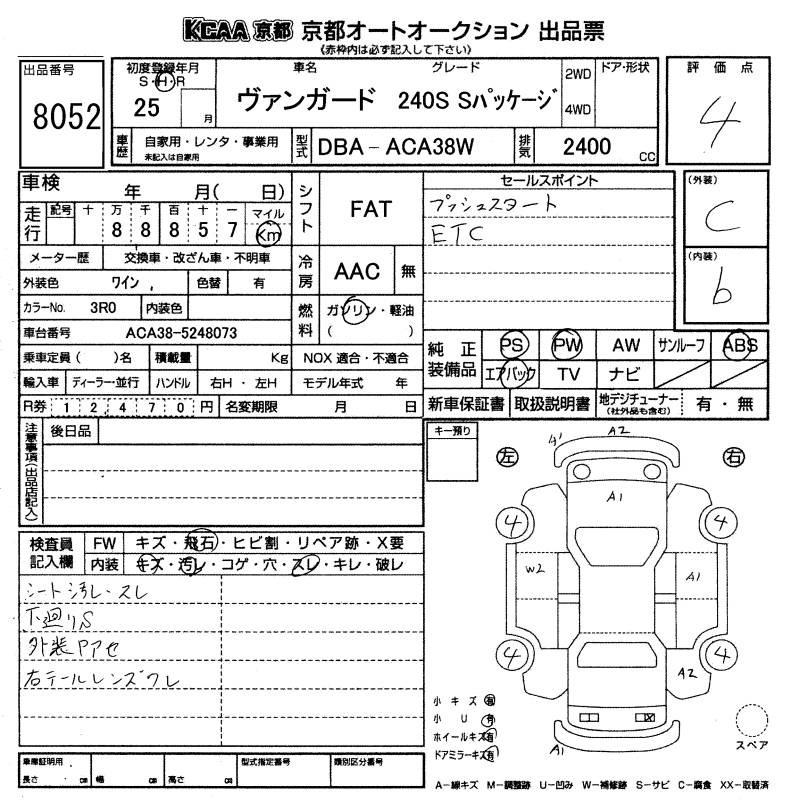 KCAA 京都 京都オートオークション 出品票
《赤枠内は必ず記入して下さい》
出品番号
8052
初度登録年月
S・H・R
25 月
車名 グレード
ヴァンガード 240S Sパッケージ
2WD
4WD
ドア・形状
評価点
4
車歴
自家用・レンタ・事業用
未記入は自家用
型式
DBA-ACA38W
排気
2400 CC
車検 年 月( 日)
走行
記号 十 万 千 百 十 一 マイル
8 8 8 5 7 Km
メーター歴 交換車・改ざん車・不明車
外装色 ワイン , 色替 有
カラーNo. 3R0 内装色
車台番号 ACA38-5248073
乗車定員( )名 積載量 Kg
輸入車 ディーラー・並行 ハンドル 右H・左H
R券 12,470円 名変期限 月 日
シフト FAT
冷房 AAC 無
燃料 ガソリン・軽油
( )
NOX 適合・不適合
モデル年式 年
セールスポイント
プッシュスタート
ETC
(外装)
C
(内装)
b
純正装備品
PS PW AW サンルーフ ABS
エアバック TV ナビ
新車保証書 取扱説明書 地デジチューナー(社外品も含む) 有・無
注意事項(出品店記入)
後日品
キー預り
左
右
A1 A2
A1
4 4
W2 A1
4 4
A2
A1
検査員記入欄
FW キズ・飛石・ヒビ割・リペア跡・X要
内装 キズ・汚レ・コゲ・穴・スレ・キレ・破レ
シート汚レ・スレ
下廻りS
外装Pアセ
右テールレンズワレ
小キズ 有
小U 有
ホイールキズ 有
ドアミラーキズ 有
スペア
車庫証明用
長さ . cm 幅 cm 高さ cm
型式指定番号
類別区分番号
A-線キズ M-調整跡 U-凹み W-補修跡 S-サビ C-腐食 XX-取替済